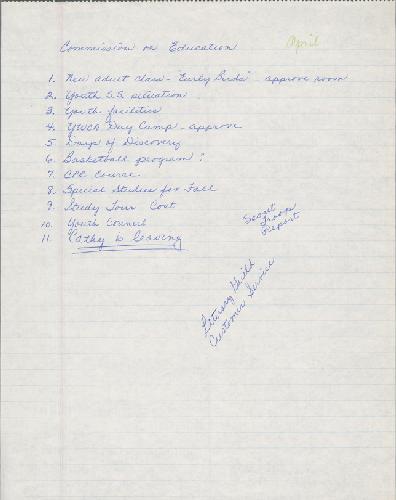 Commission on Education
April
1. New adult class - "Early Birds" - approve room
2. Youth S.S. situation
3. Youth facilities
4. YWCA Day Camp - approve
5. Camp of Discovery
6. Basketball program?
7. CPE Course
8. Special Studies for Fall
9. Study Tour Cost
10. Youth Council
11. Cathy is leaving
Scout
Troop
Report
Literary Guild
Customer Service